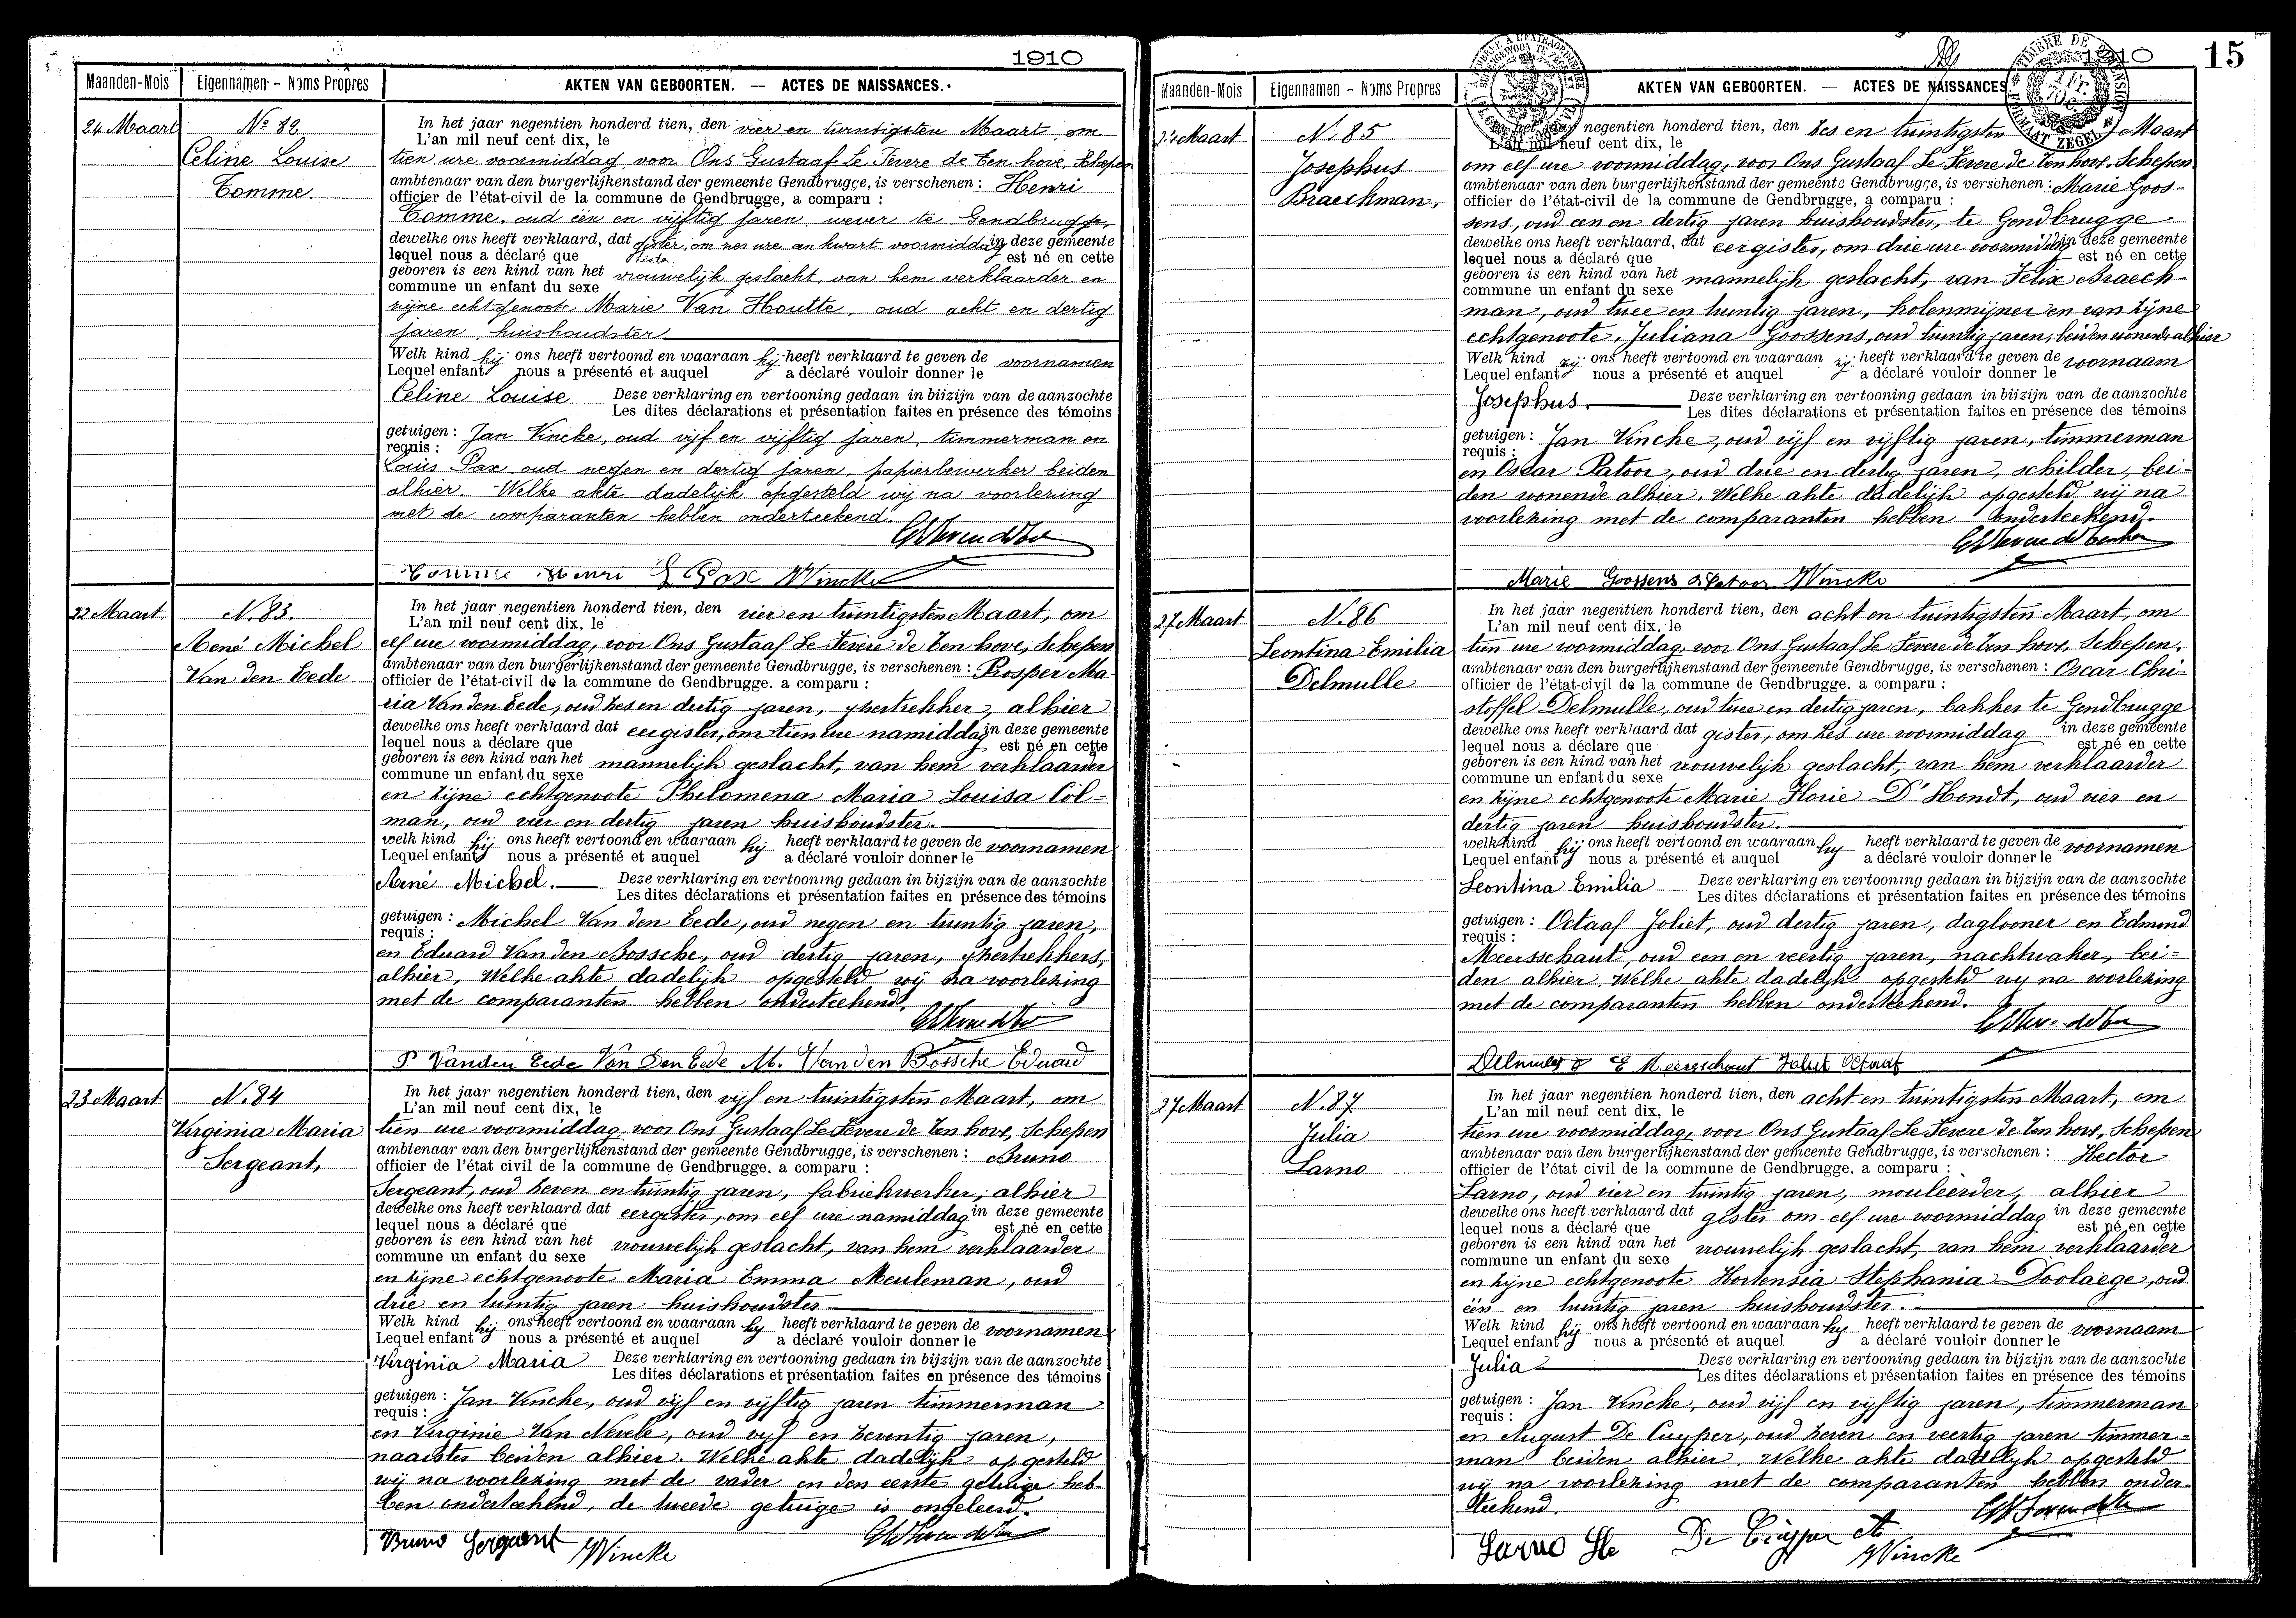 1910
Maanden-Mois Eigennamen - Noms Propres AKTEN VAN GEBOORTEN. — ACTES DE NAISSANCES.
24 Maart
No 82
Celine Louise
Comme.
In het jaar negentien honderd tien, den vier en twintigsten Maart om
L'an mil neuf cent dix, le
tien ure voormiddag voor Ons Gustaaf Le Fevere de Ten hove, Schepen
ambtenaar van den burgerlijkenstand der gemeente Gendbrugge, is verschenen : Henri
officier de l'état-civil de la commune de Gendbrugge, a comparu :
Comme, oud één en vijftig jaren wever te Gendbrugge,
dewelke ons heeft verklaard, dat gister, om zes ure en kwart voormiddag in deze gemeente
lequel nous a déclaré que est né en cette
geboren is een kind van het vrouwelijk geslacht, van hem verklaarder en
commune un enfant du sexe
zijne echtgenoote Marie Van Houtte, oud acht en dertig
jaren, huishoudster
Welk kind hij ons heeft vertoond en waaraan hij heeft verklaard te geven de voornamen
Lequel enfant nous a présenté et auquel a déclaré vouloir donner le
Celine Louise Deze verklaring en vertooning gedaan in bijzijn van de aanzochte
Les dites déclarations et présentation faites en présence des témoins
getuigen : Jan Vincke, oud vijf en vijftig jaren, timmerman en
requis :
Louis Pax oud negen en dertig jaren, papierbewerker beiden
alhier. Welke akte dadelijk opgesteld wij na voorlezing
met de comparanten hebben onderteekend.
Comme Henri L Pax JVincke
22 Maart
N. 83.
René Michel
Van den Eede
In het jaar negentien honderd tien, den vier en twintigsten Maart, om
L'an mil neuf cent dix, le
elf ure voormiddag, voor Ons Gustaaf Le Fevere de Ten hove, Schepen
ambtenaar van den burgerlijkenstand der gemeente Gendbrugge, is verschenen : Prosper Ma-
officier de l'état-civil de la commune de Gendbrugge. a comparu :
ria Van den Eede, oud zes en dertig jaren, ijzertrekker, alhier
dewelke ons heeft verklaard dat eergister, om tien ure namiddag in deze gemeente
lequel nous a déclare que est né en cette
geboren is een kind van het mannelijk geslacht, van hem verklaarder
commune un enfant du sexe
en zijne echtgenoote Philomena Maria Louisa Col-
man, oud vier en dertig jaren huishoudster.
welk kind hij ons heeft vertoond en waaraan hij heeft verklaard te geven de voornamen
Lequel enfant nous a présenté et auquel a déclaré vouloir donner le
René Michel. Deze verklaring en vertooning gedaan in bijzijn van de aanzochte
Les dites déclarations et présentation faites en présence des témoins
getuigen : Michel Van den Eede, oud negen en twintig jaren,
requis :
en Eduard Van den Bossche, oud dertig jaren, ijzertrekkers,
alhier, Welke akte dadelijk opgesteld wij na voorlezing
met de comparanten hebben onderteekend.
P Vanden Eede Van Den Eede M. Van den Bossche Eduard
23 Maart
N. 84
Virginia Maria
Sergeant,
In het jaar negentien honderd tien, den vijf en twintigsten Maart, om
L'an mil neuf cent dix, le
tien ure voormiddag, voor Ons Gustaaf Le Fevere de Ten hove, Schepen
ambtenaar van den burgerlijkenstand der gemeente Gendbrugge, is verschenen : Bruno
officier de l'état civil de la commune de Gendbrugge. a comparu :
Sergeant, oud zeven en twintig jaren, fabriekwerker, alhier
dewelke ons heeft verklaard dat eergister, om elf ure namiddag in deze gemeente
lequel nous a déclaré que est né en cette
geboren is een kind van het vrouwelijk geslacht, van hem verklaarder
commune un enfant du sexe
en zijne echtgenoote Maria Emma Meuleman, oud
drie en twintig jaren huishoudster
Welk kind hij ons heeft vertoond en waaraan hij heeft verklaard te geven de voornamen
Lequel enfant nous a présenté et auquel a déclaré vouloir donner le
Virginia Maria Deze verklaring en vertooning gedaan in bijzijn van de aanzochte
Les dites déclarations et présentation faites en présence des témoins
getuigen : Jan Vincke, oud vijf en vijftig jaren timmerman
requis :
en Virginie Van Nevele, oud vijf en zeventig jaren,
naaister beiden alhier. Welke akte dadelijk opgesteld
wij na voorlezing met de vader en den eerste getuige heb-
ben onderteekend, de tweede getuige is ongeleerd.
Bruno Sergeant JVincke
1910 15
Maanden-Mois Eigennamen - Noms Propres AKTEN VAN GEBOORTEN. — ACTES DE NAISSANCES
Maart
N. 85
Josephus
Braeckman,
negentien honderd tien, den zes en twintigsten Maart
L'an mil neuf cent dix, le
om elf ure voormiddag, voor Ons Gustaaf Le Fevere de Ten hove, Schepen
ambtenaar van den burgerlijkenstand der gemeente Gendbrugge, is verschenen : Marie Goos-
officier de l'état-civil de la commune de Gendbrugge, a comparu :
sens, oud een en dertig jaren huishoudster, te Gendbrugge
dewelke ons heeft verklaard, dat eergister, om drie ure voormiddag in deze gemeente
lequel nous a déclaré que est né en cette
geboren is een kind van het mannelijk geslacht, van Felix Braeck-
commune un enfant du sexe
man, oud twee en twintig jaren, kolenmijner en van zijne
echtgenoote, Juliana Goossens, oud twintig jaren, beiden wonende alhier
Welk kind zij ons heeft vertoond en waaraan zij heeft verklaard te geven de voornaam
Lequel enfant nous a présenté et auquel a déclaré vouloir donner le
Josephus. Deze verklaring en vertooning gedaan in bijzijn van de aanzochte
Les dites déclarations et présentation faites en présence des témoins
getuigen : Jan Vincke, oud vijf en vijftig jaren, timmerman
requis :
en Oscar Patoor, oud drie en dertig jaren, schilder, bei-
den wonende alhier. Welke akte dadelijk opgesteld wij na
voorlezing met de comparanten hebben onderteekend.
Marie Goossens O Patoor JVincke
27 Maart
N. 86
Leontina Emilia
Delmulle
In het jaar negentien honderd tien, den acht en twintigsten Maart, om
L'an mil neuf cent dix, le
tien ure voormiddag, voor Ons Gustaaf Le Fevere de Ten hove, Schepen.
ambtenaar van den burgerlijkenstand der gemeente Gendbrugge, is verschenen : Oscar Chri-
officier de l'état-civil de la commune de Gendbrugge. a comparu :
stoffel Delmulle, oud twee en dertig jaren, bakker te Gendbrugge
dewelke ons heeft verklaard dat gister, om zes ure voormiddag in deze gemeente
lequel nous a déclare que est né en cette
geboren is een kind van het vrouwelijk geslacht, van hem verklaarder
commune un enfant du sexe
en zijne echtgenoote Marie Florie D'Hondt, oud vier en
dertig jaren huishoudster.
welk kind hij ons heeft vertoond en waaraan hij heeft verklaard te geven de voornamen
Lequel enfant nous a présenté et auquel a déclaré vouloir donner le
Leontina Emilia Deze verklaring en vertooning gedaan in bijzijn van de aanzochte
Les dites déclarations et présentation faites en présence des témoins
getuigen : Octaaf Joliet, oud dertig jaren, daglooner en Edmond
requis :
Meersschaut, oud een en veertig jaren, nachtwaker, bei-
den alhier, Welke akte dadelijk opgesteld wij na voorlezing
met de comparanten hebben onderteekend.
E Meersschaut Joliet Octaaf
27 Maart
N. 87
Julia
Larno
In het jaar negentien honderd tien, den acht en twintigsten Maart, om
L'an mil neuf cent dix, le
tien ure voormiddag, voor Ons Gustaaf Le Fevere de Ten hove, Schepen
ambtenaar van den burgerlijkenstand der gemeente Gendbrugge, is verschenen : Hector
officier de l'état civil de la commune de Gendbrugge. a comparu :
Larno, oud vier en twintig jaren, mouleerder, alhier
dewelke ons heeft verklaard dat gister om elf ure voormiddag in deze gemeente
lequel nous a déclaré que est né en cette
geboren is een kind van het vrouwelijk geslacht, van hem verklaarder
commune un enfant du sexe
en zijne echtgenoote Hortensia Stephania Doolaege, oud
één en twintig jaren huishoudster.
Welk kind hij ons heeft vertoond en waaraan hij heeft verklaard te geven de voornaam
Lequel enfant nous a présenté et auquel a déclaré vouloir donner le
Julia Deze verklaring en vertooning gedaan in bijzijn van de aanzochte
Les dites déclarations et présentation faites en présence des témoins
getuigen : Jan Vincke, oud vijf en vijftig jaren, timmerman
requis :
en August De Cuyper, oud zeven en veertig jaren timmer-
man beiden alhier. Welke akte dadelijk opgesteld
wij na voorlezing met de comparanten hebben onder-
teekend.
Larno De Cuyper JVincke